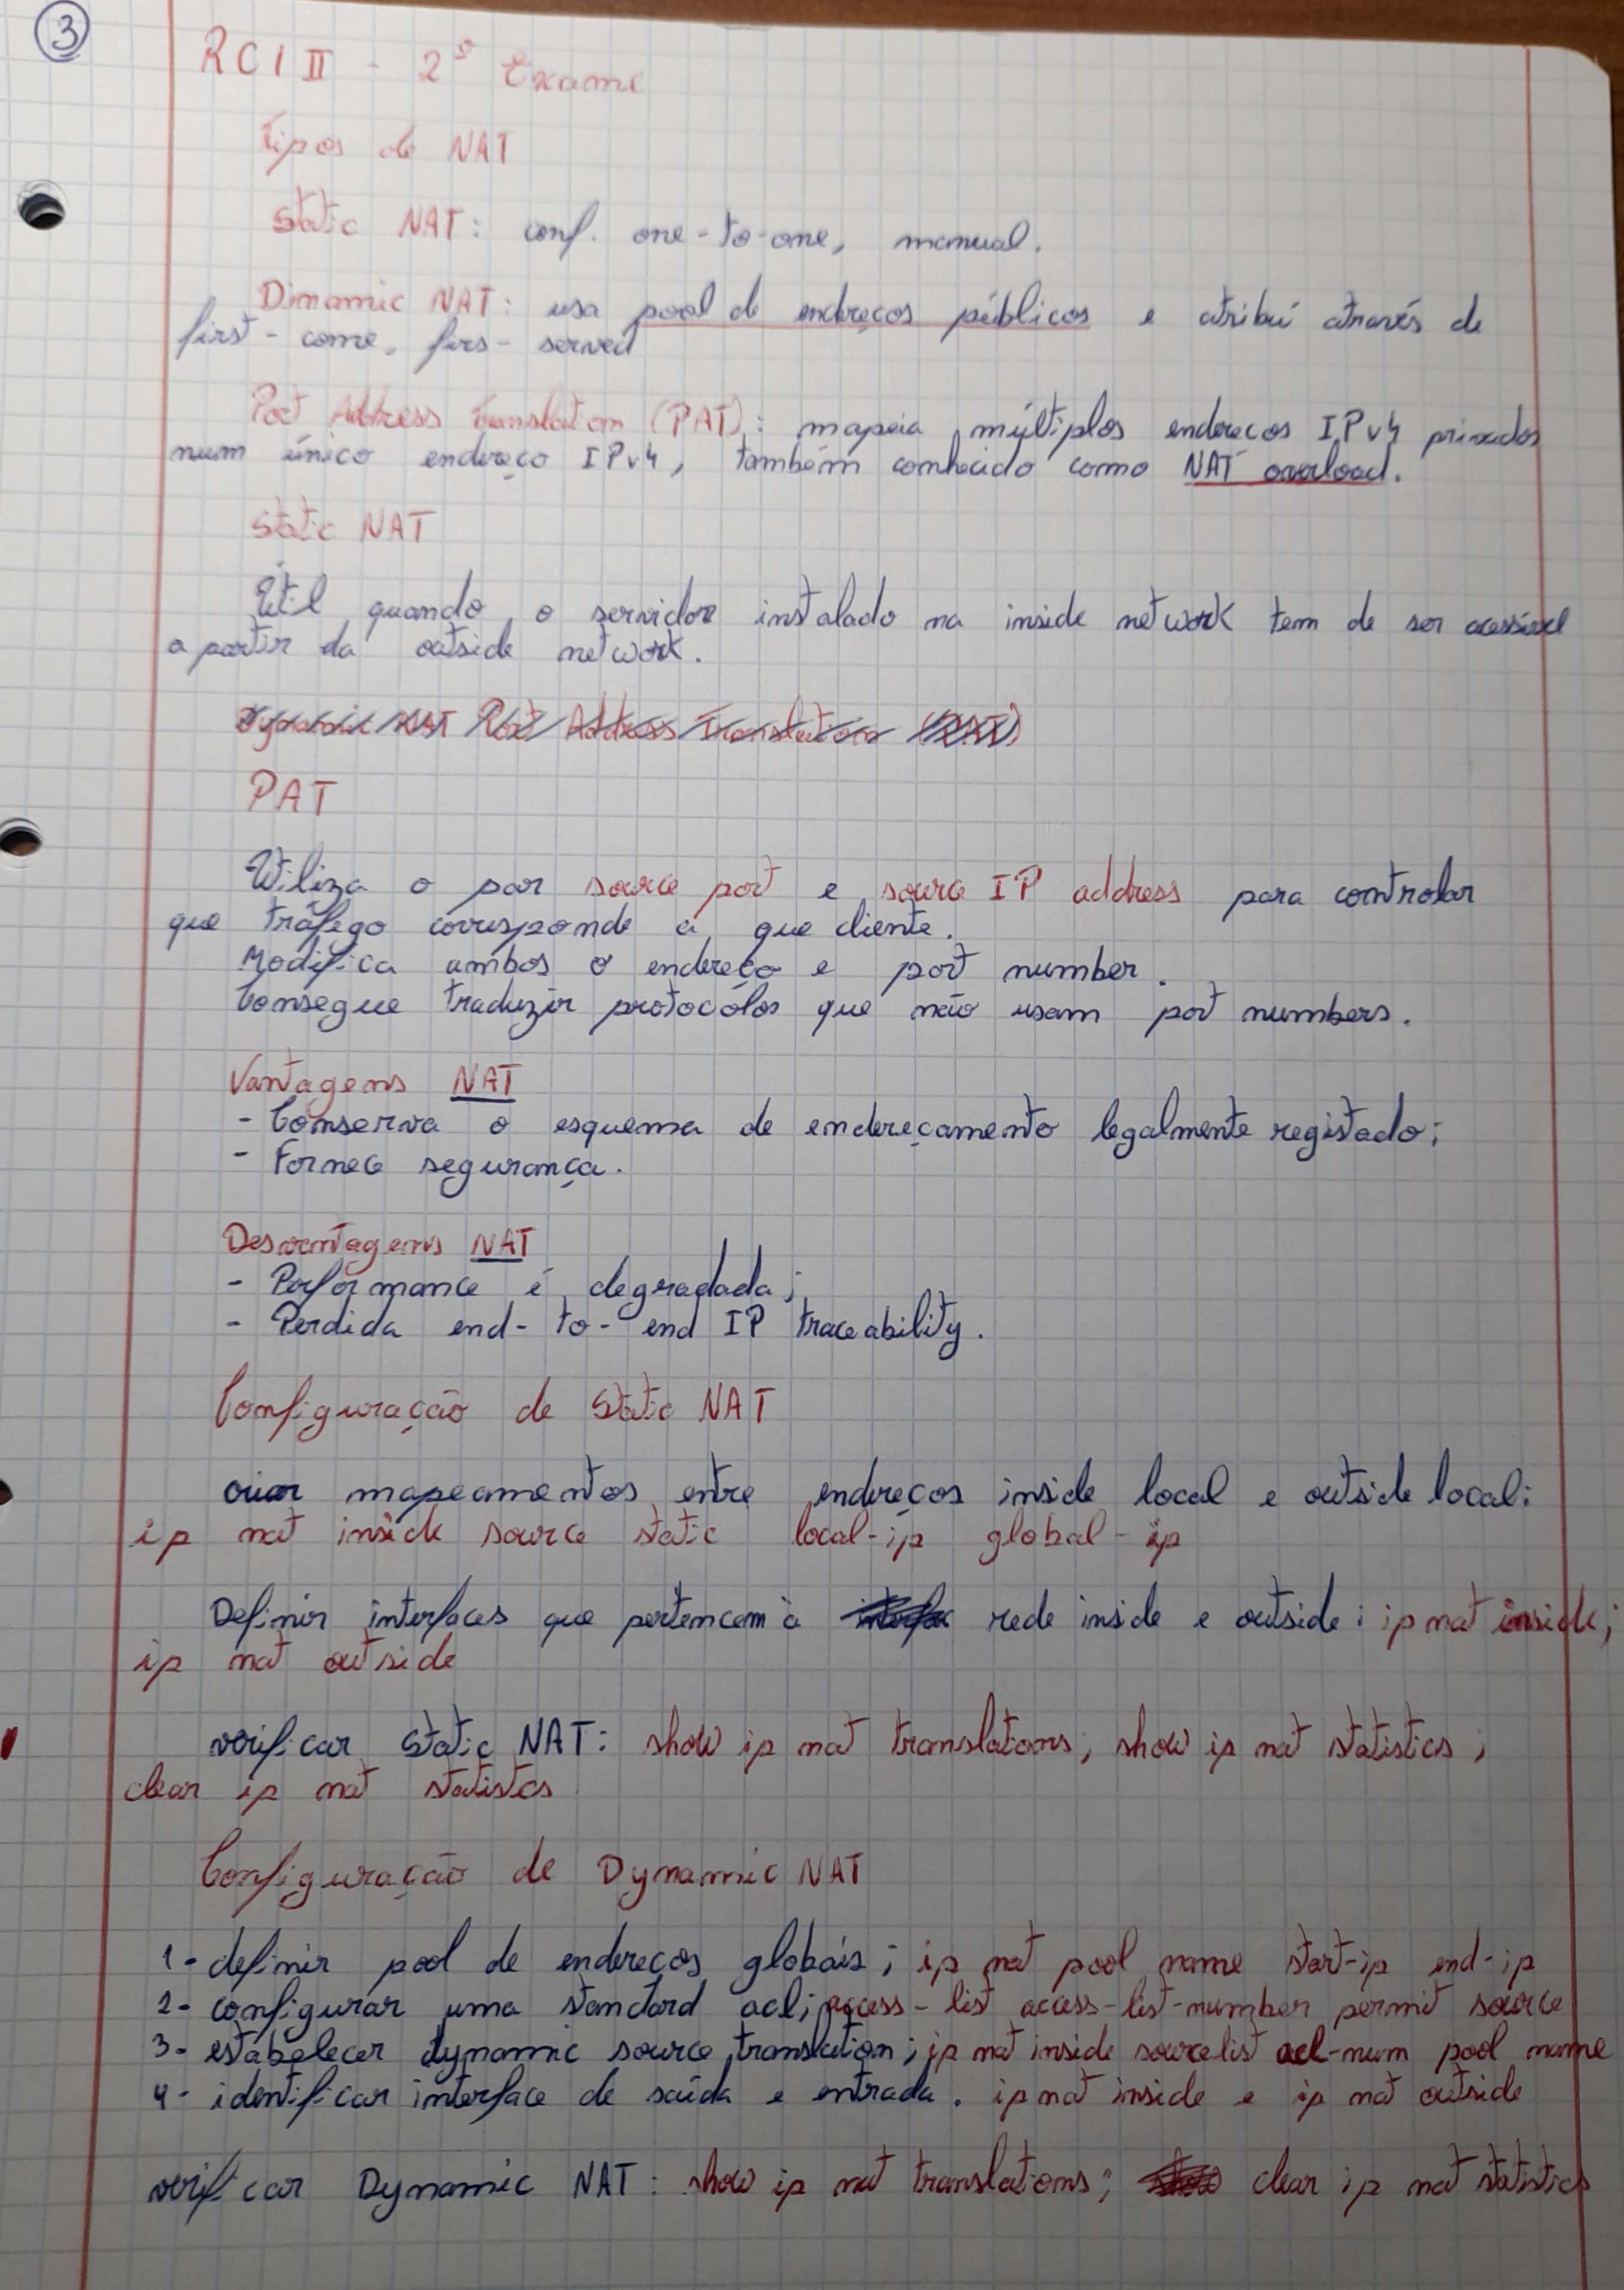 3
RCI II - 2º Exame
Tipos de NAT
Static NAT: conf. one-to-one, manual.
Dinamic NAT: usa pool de endereços públicos e atribuí através de
first-come, firs-served
Port Address Translation (PAT): mapeia múltiplos endereços IPv4 privados
num único endereço IPv4, também conhecido como NAT overload.
Static NAT
Útil quando o servidor instalado na inside network tem de ser acessível
a partir da outside network.
Dynamic NAT Port Address Translation (PAT)
PAT
Utiliza o par source port e source IP address para controlar
que tráfego corresponde a que cliente.
Modifica ambos o endereço e port number.
Consegue traduzir protocólos que não usam port numbers.
Vantagens NAT
- Conserva o esquema de endereçamento legalmente registado;
- Fornece segurança.
Desvantagens NAT
- Performance é degradada;
- Perdida end-to-end IP traceability.
Configuração de Static NAT
criar mapeamentos entre endereços inside local e outside local:
ip nat inside source static local-ip global-ip
Definir interfaces que pertencem à interface rede inside e outside: ip nat inside;
ip nat outside
verificar Static NAT: show ip nat translations; show ip nat statistics;
clear ip nat statistcs
Configuração de Dynamic NAT
1- definir pool de endereços globais; ip nat pool name start-ip end-ip
2- configurar uma standard acl; access-list access-list-number permit source
3- estabelecer dynamic source translation; ip nat inside source list acl-num pool name
4- identificar interface de saída e entrada. ip nat inside e ip nat outside
verificar Dynamic NAT: show ip nat translations; show clear ip nat statistics